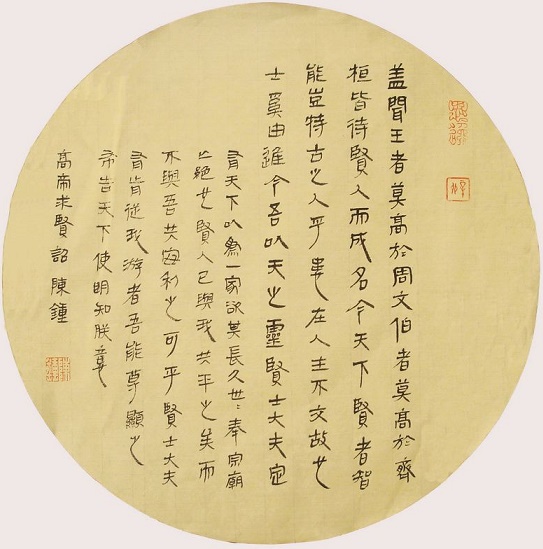 盖聞王者莫高於周文伯者莫高於齊
桓皆待賢人而成名今天下賢者智
能豈特古之人乎患在人主不交故也
士奚由進今吾以天之靈賢士大夫定
有天下以為一家欲其長久世〻奉宗廟
亡絕也賢人已與我共平之矣而
不與吾共安利之可乎賢士大夫
有肯從我游者吾能尊顯之
布告天下使明知朕意
高帝求賢詔 陳鍾